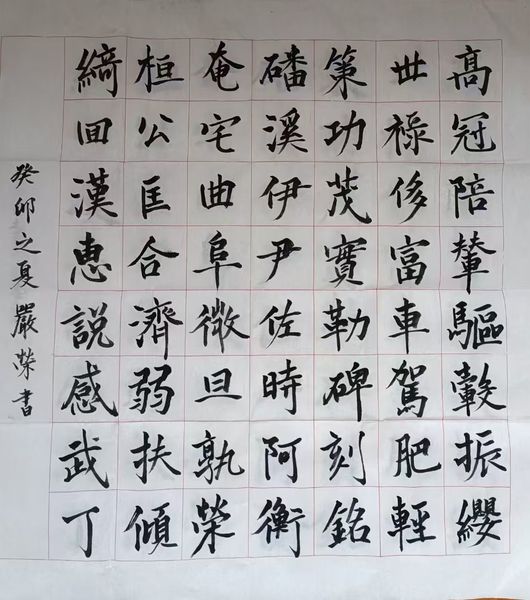 高冠陪輦驅轂振纓
世祿侈富車駕肥輕
策功茂實勒碑刻銘
磻溪伊尹佐時阿衡
奄宅曲阜微旦孰榮
桓公匡合濟弱扶傾
綺囬漢惠說感武丁
癸卯之夏嚴榮書